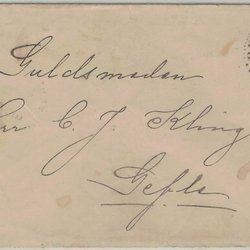 Guldsmeden
Herr C. J. Kling
Gefle